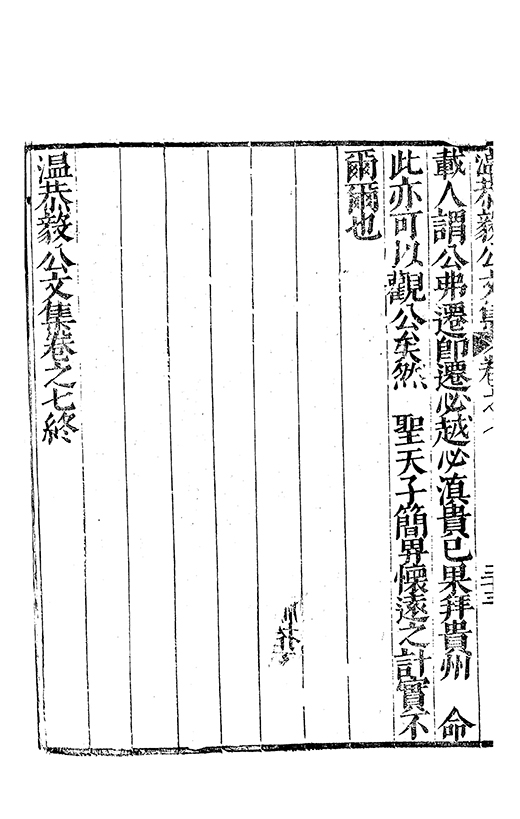 温恭毅公文集 卷之七 三十三
載人謂公弗遷卽遷必越必滇貴已果拜貴州 命
此亦可以觀公矣然 聖天子簡畀懷遠之計實不
爾爾也
温恭毅公文集卷之七終